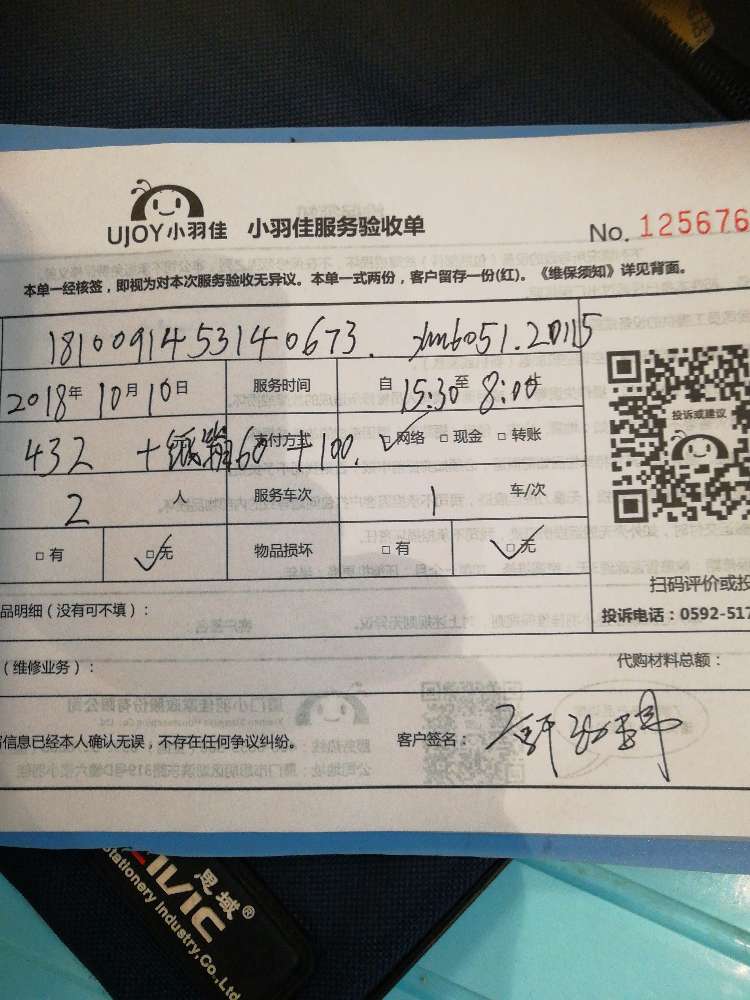 UJOY小羽佳 小羽佳服务验收单
No. 125676
本单一经核签，即视为对本次服务验收无异议。本单一式两份，客户留存一份(红)。《维保须知》详见背面。
181009145314 0673.
2018年10月10日 服务时间 自15:30至8:00
432 +60 +100. 支付方式 ☑网络 □现金 □转账
2人 服务车次 1 车/次
□有 ☑无 物品损坏 □有 ☑无
投诉或建议
扫码评价或投
品明细（没有可不填）：
投诉电话：0592-517
（维修业务）：
代购材料总额：
信息已经本人确认无误，不存在任何争议纠纷。 客户签名：
思域®
CIVIC
Stationery Industry,Co.,Ltd